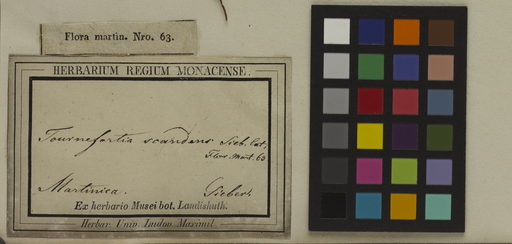 Flora martin. Nro. 63.
HERBARIUM REGIUM MONACENSE.
Tournefortia scandens Sieb. Cat.,
Flor. Mart. 63
Martinica. Sieber.
Ex herbario Musei bot. Landishuth.
Herbar. Univ. Ludov. Maximil.